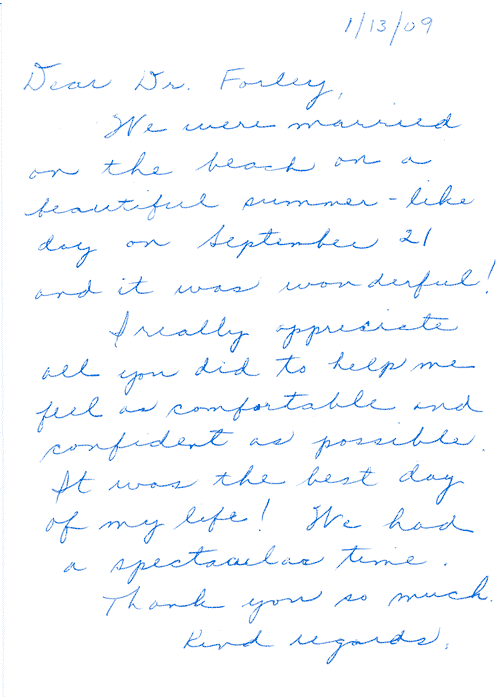 1/13/09
Dear Dr. Forley,
We were married
on the beach on a
beautiful summer-like
day on September 21
and it was wonderful!
I really appreciate
all you did to help me
feel as comfortable and
confident as possible.
It was the best day
of my life! We had
a spectacular time.
Thank you so much.
Kind regards,